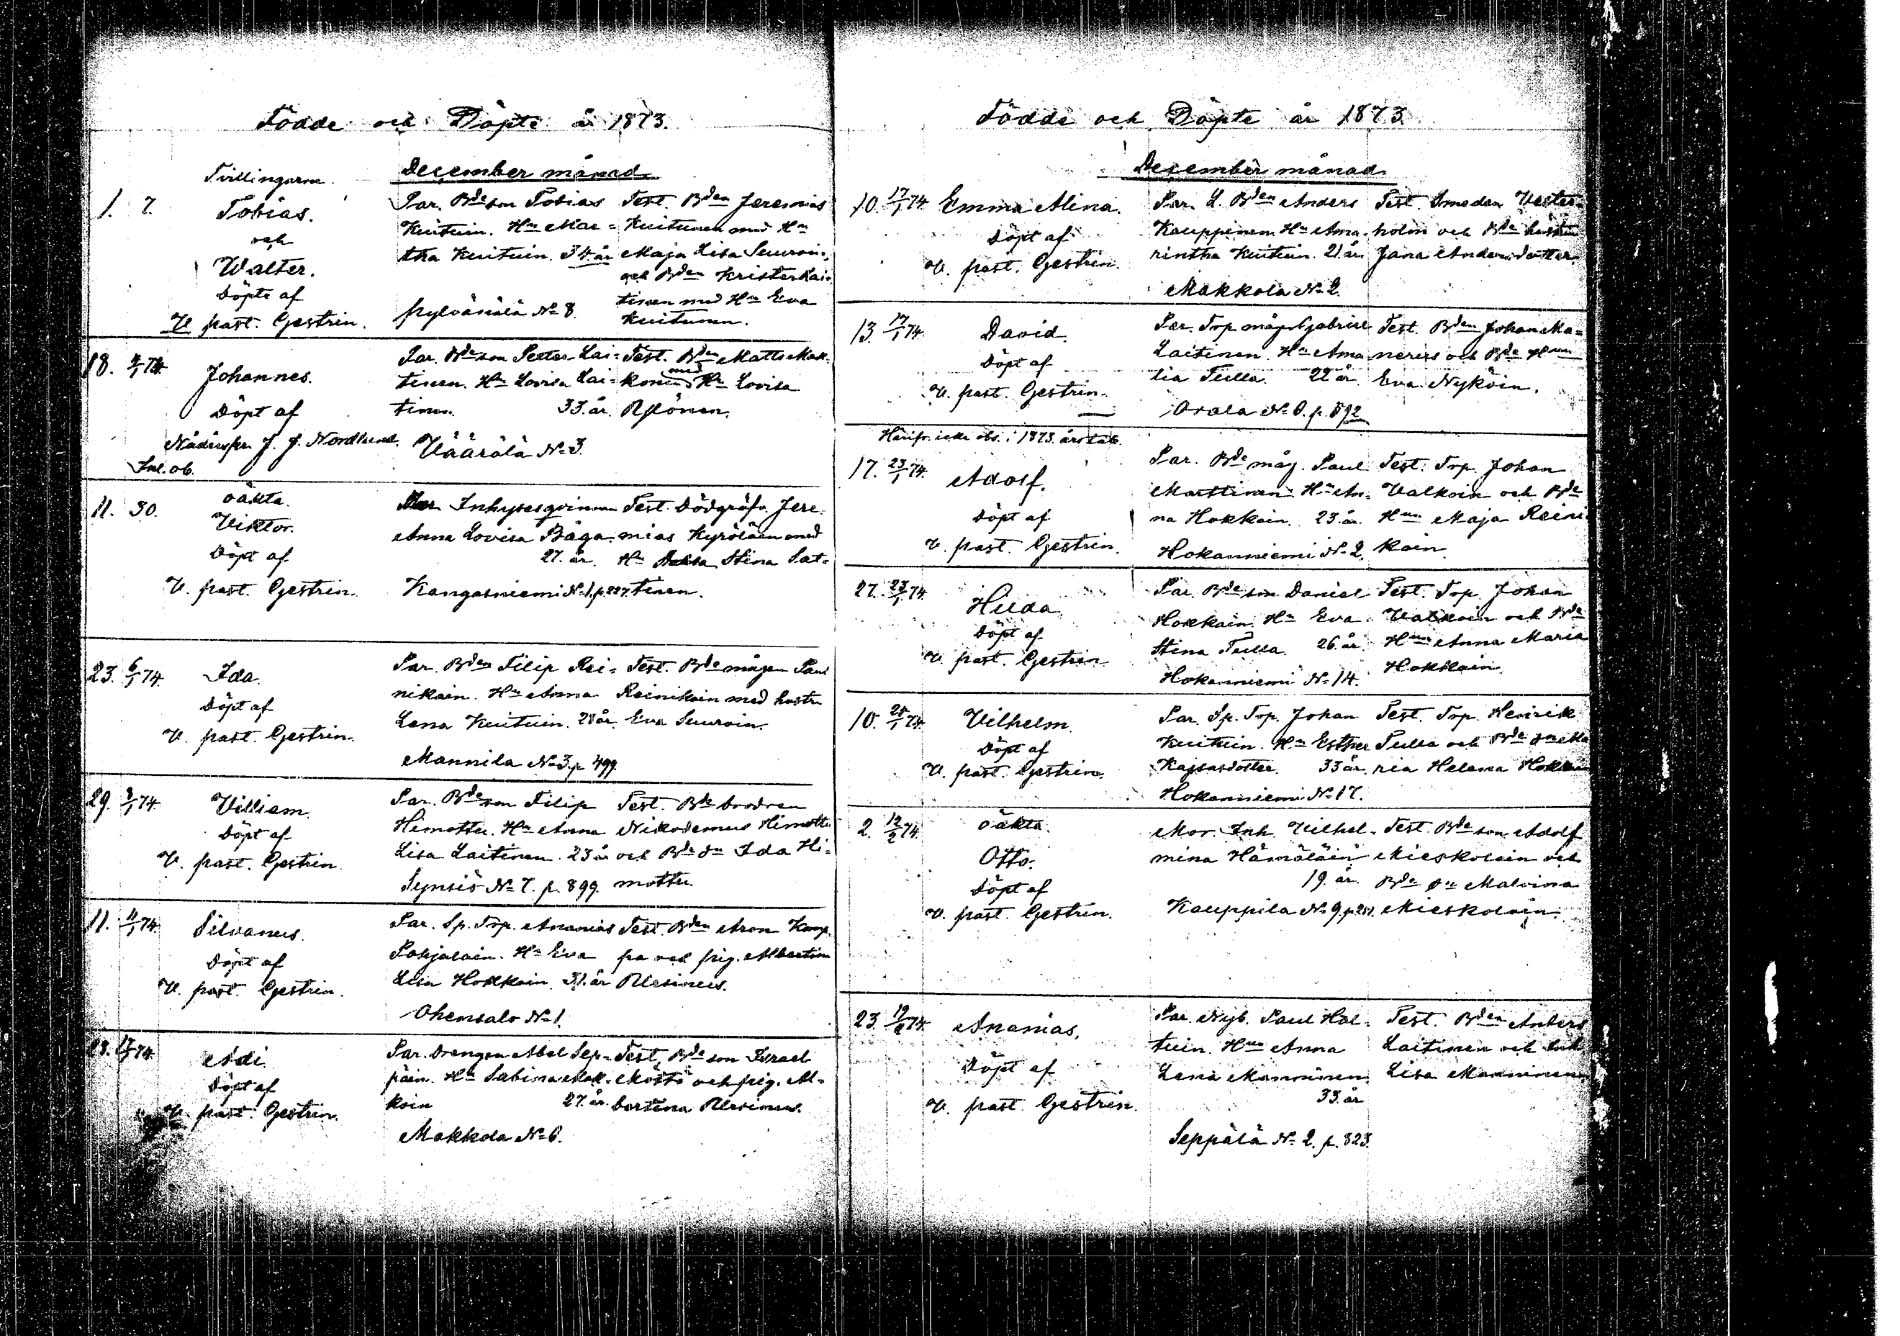 Födde och Döpte år 1873.
December månad
Tvillingarne
1. 7. Tobias.
och
Walter.
Döpte af
V. past. Gestrin.
Par. Bdeson Tobias
Kuituin. Hu Mar=
tha Kuituin. 34 år
Pylvänälä No 8.
Test. Bden Jeremias
Kuitunen med Hu
Maja Lisa Suuroin,
och Bden Krister Lai=
tinen med Hu Eva
Kuitunen.
18. 4/1 74. Johannes.
Döpt af
Nådårspr. J. J. Nordlund.
Par. Bdeson Petter Lai=
tinen. Hu Lovisa Lai=
tinen. 33 år
Väärälä No 3.
Test. Bden Matts Mak=
konen med Hu Lovisa
11. 30. oäkta.
Viktor.
Döpt af
V. past. Gestrin.
Inhysesqvinnan
Anna Lovisa Båga.
27. år.
Kangasniemi No 1. p. 227.
Test. Dödgräfv. Jere=
mias Kyröläin med
Hu Stina Lat=
tinen.
23. 6/1 74. Ida.
Döpt af
V. past. Gestrin.
Par. Bden Filip Rei=
nikain. Hu Anna
Lena Kuituin. 28 år
Mannila No 3. p. 499
Test. Bdemågen Paul
Reinikain med hustr.
Eva Suuroin.
29. 74. Villiam.
Döpt af
V. past. Gestrin
Par. Bdeson Filip
Himottu. Hu Anna
Lisa Laitinen. 23 år
Synsiö No 7. p. 899.
Test. Bdebrodren
Nikodemus Himottu
och Bde dn Ida Hi=
mottu.
11. 4/1 74. Silvanus.
Döpt af
V. past. Gestrin.
Par. Sp. Trp. Ananias
Pohjalain. Hu Eva
Lisa Hokkain. 31. år
Ohensalo No 1.
Test. Bden Aron Kamp=
pa och pig. Albertina
Ursinus.
74. Adi.
Döpt af
V. past. Gestrin.
Par. Drengen Abel Sep=
päin. Hu Sabina Mak=
koin 27. år
Makkola No 6.
Test. Bdeson Israel
Mössö och pig. Al=
bertina Ursinus.
Födde och Döpte år 1873.
December månad
10. 17/1 74. Emma Alina.
Döpt af
V. past. Gestrin.
Par. L. Bden Anders
Kauppinen Hu Ama=
rintha Kuituin. 21 år
Makkola No 2.
Test. Smeden Vester=
holm och Bde hustru
Jana Andersdotter.
13. 17/1 74. David.
Döpt af
V. past. Gestrin.
Par. Trp. måg Gabriel
Laitinen. Hu Ama=
lia Tulla. 22 år
Test. Bden Johan Ma=
ners och Bde
Eva Nyköin.
p. 892
1873 års tab.
17. 23/1 74. Adolf.
Döpt af
V. past. Gestrin.
Par. Bde måg. Paul
Marttinen. Hu An=
na Hokkain. 23 år.
Hokanniemi No 2.
Test. Trp. Johan
Valkoin och Bde
Hun Maja Reini=
kain.
27. 23/1 74. Hilda.
Döpt af
V. past. Gestrin
Par. Bdeson Daniel
Hokkain. Hu Eva
Stina Tulla. 26. år
Hokanniemi No 14.
Test. Trp. Johan
Valkoin och Bde
Hun Anna Maria
Hokkain.
10. 25/1 74. Vilhelm.
Döpt af
V. past. Gestrin.
Par. Sp. Trp. Johan
Kuituin. Hu Esther
Kajsasdotter. 33 år
Hokanniemi No 17.
Test. Trp. Henrik
Tulla och Bde dn Ma
ria Helena Hokkain
2. 12/2 74. oäkta.
Otto.
Döpt af
V. past. Gestrin.
Mor. Inh. Vilhel=
mina Hämäläin
19. år.
Kauppila No 9. p. 251.
Test. Bde son Adolf
Mieskolain och
Bde dn Malvina
Mieskolain.
23. 74. Ananias.
Döpt af
V. past. Gestrin.
Par. Nyb. Paul Hol=
tuin. Hun Anna
Lena Manninen.
33. år
Seppälä No 2. p. 323.
Test. Bden Anders
Laitinen och Inh
Lisa Manninen